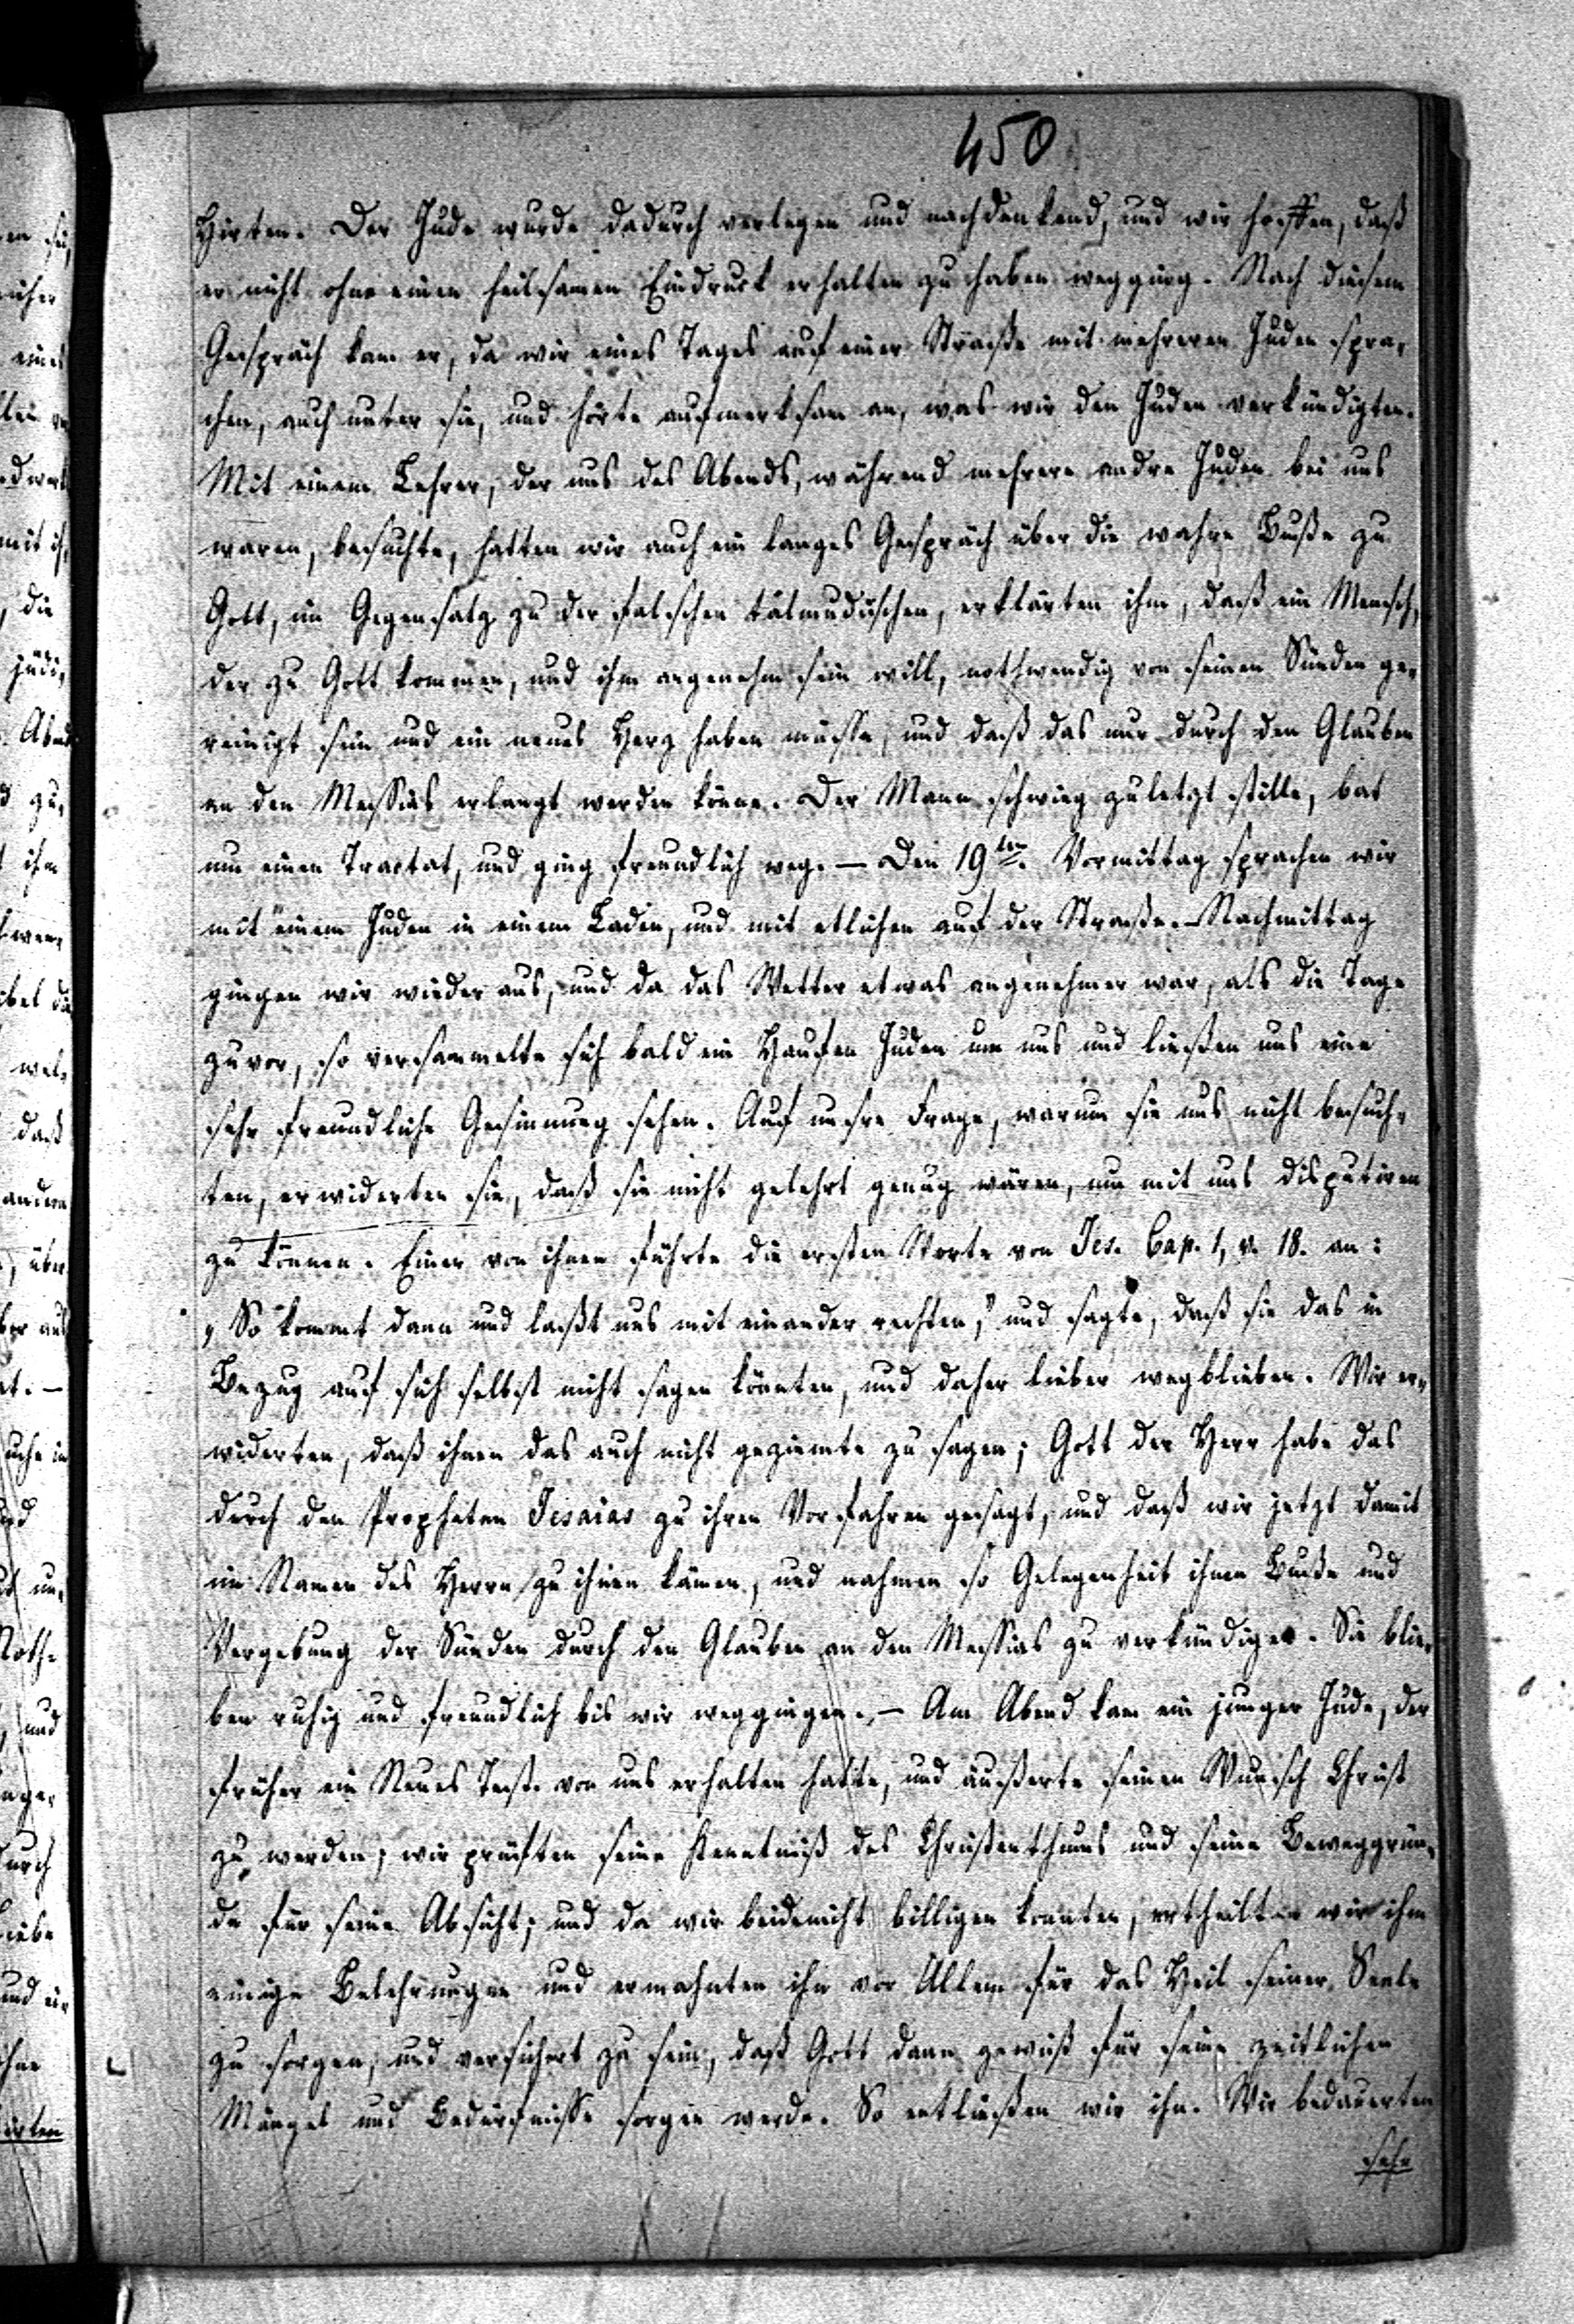 450
Hirten. Der Jude wurde dadurch verlegen und nachdenkend, und wir hoffen, daß
er nicht ohne einen heilsamen Eindruck erhalten zu haben wegging. Nach diesem
Gespräch kam er, da wir eines Tages auf einer Straße mit mehreren Juden spra-
chen, auch unter sie, und hörte aufmerksam an, was wir den Juden verkündigten.
Mit einem Lehrer, der uns des Abends, während mehrere andre Juden bei uns
waren, besuchte, hatten wir auch ein langes Gespräch über die wahre Buße zu
Gott, im Gegensatz zu der falschen talmudischen, erklärten ihm, daß ein Mensch,
der zu Gott kommen, und ihm angenehm sein will, nothwendig von seinen Sünden ge-
reinigt sein und ein neues Herz haben müsse, und daß das nur durch den Glauben
an den Messias erlangt werden könne. Der Mann schwieg zuletzt stille, bat
um einen Tractat, und ging freundlich weg. — Den 19ten. Vormittag sprachen wir
mit einem Juden in einem Laden, und mit etlichen auf der Straße. – Nachmittag
gingen wir wieder aus, und da das Wetter etwas angenehmer war, als die Tage
zuvor, so versammelte sich bald ein Haufen Juden um uns und ließen uns eine
sehr freundliche Gesinnung sehen. Auf unsre Frage, warum sie uns nicht besuch-
ten, erwiderten sie, daß sie nicht gelehrt genug wären, um mit uns disputiren
zu können. Einer von ihnen führte die ersten Worte von Jes. Cap. 1, v. 18. an:
„So kommt dann und laßt uns mit einander rechten," und sagte, daß sie das in
Bezug auf sich selbst nicht sagen könnten, und daher lieber wegblieben. Wir er-
widerten, daß ihnen das auch nicht geziemte zu sagen; Gott der Herr habe das
durch den Propheten Jesaias zu ihren Vorfahren gesagt, und daß wir jetzt damit
im Namen des Herrn zu ihnen kämen, und nahmen so Gelegenheit ihnen Buße und
Vergebung der Sünden durch den Glauben an den Messias zu verkündigen. Sie blie-
ben ruhig und freundlich bis wir weggingen. – Am Abend kam ein junger Jude, der
früher ein Neues Test. von uns erhalten hatte, und äußerte seinen Wunsch Christ
zu werden; wir prüften seine Kenntniß des Christenthums und seine Beweggrün-
de für seine Absicht; und da wir beide nicht billigen konnten, ertheilten wir ihm
einige Belehrungen und ermahnten ihn vor Allem für das Heil seiner Seele
zu sorgen, und versichert zu sein, daß Gott dann gewiß für seine zeitlichen
Mängel und Bedürfnisse sorgen werde. So entließen wir ihn. Wir bedauerten
sehr